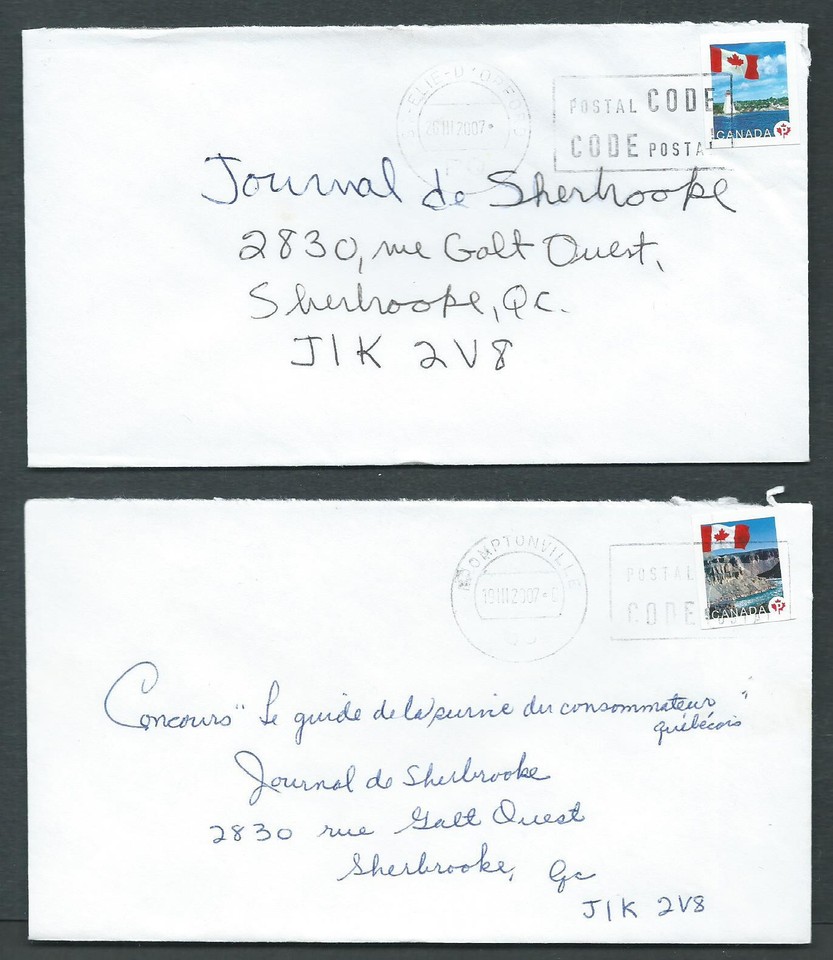 ELIE-D'ORFORD
POSTAL CODE
20 III 2007
CODE POSTAL
CANADA P
Journal de Sherbrooke
2830, rue Galt Ouest,
Sherbrooke, Qc.
J1K 2V8
BROMPTONVILLE
POSTAL
19 III 2007
CODE
POSTAL
CANADA P
Concours "Le guide de la survie du consommateur
québécois"
Journal de Sherbrooke
2830 rue Galt Ouest
Sherbrooke, Qc
J1K 2V8